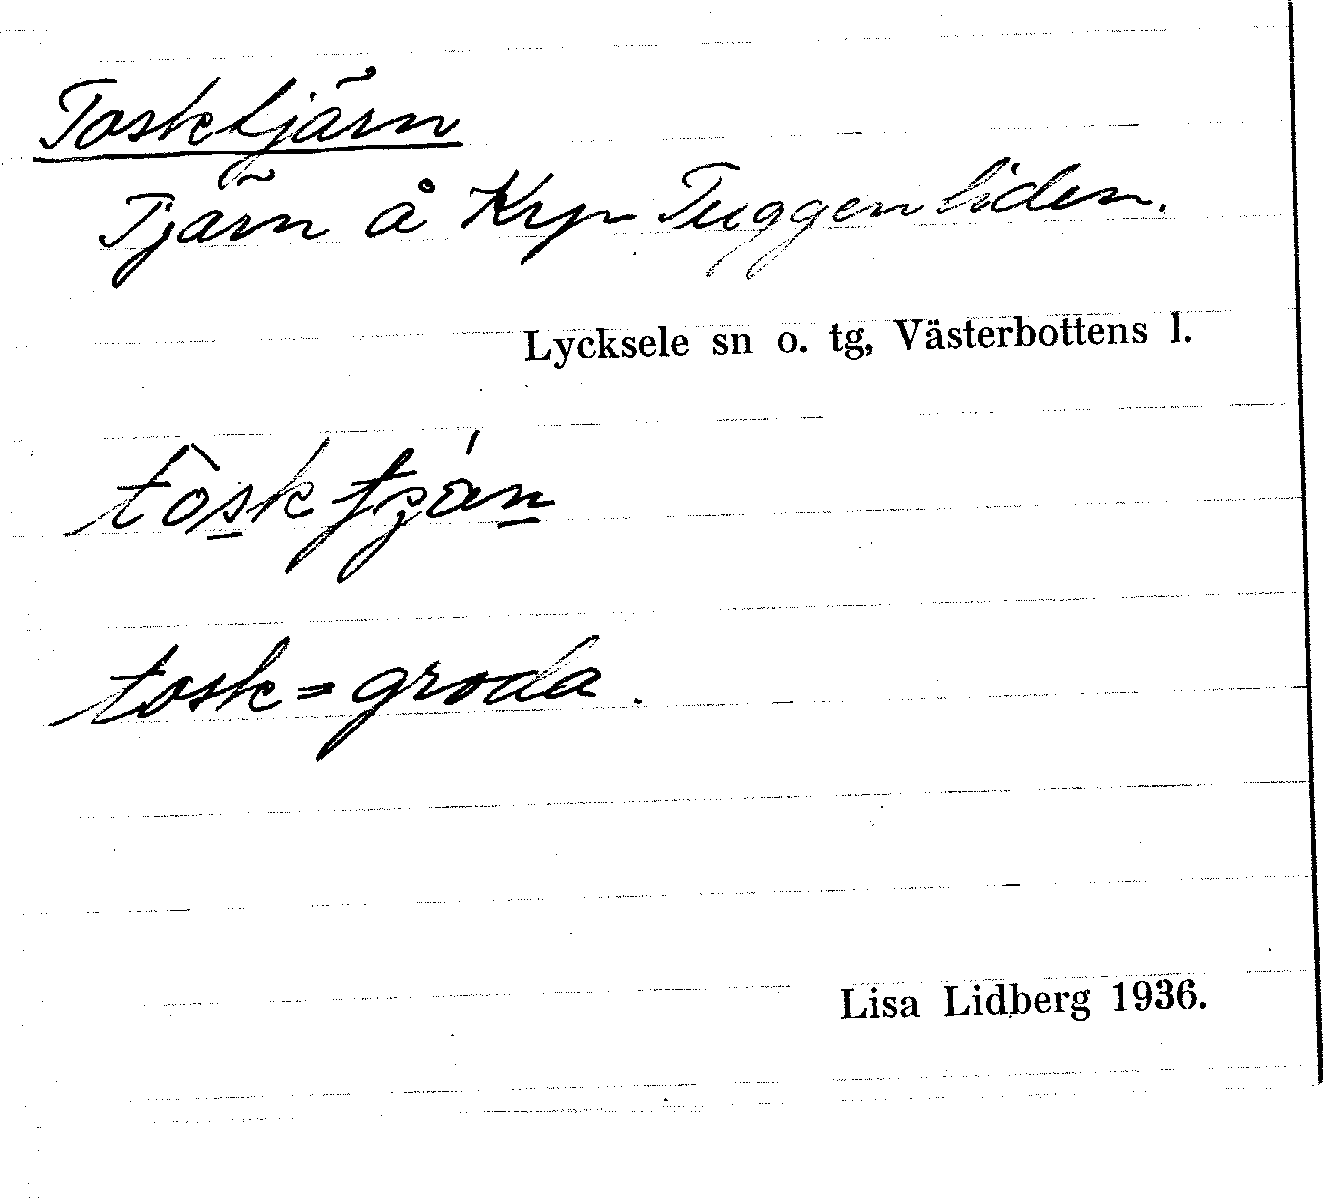 Tosktjärn
Tjärn å Krp Tuggenliden.
Lycksele sn o. tg, Västerbottens l.
tosk = groda.
Lisa Lidberg 1936.